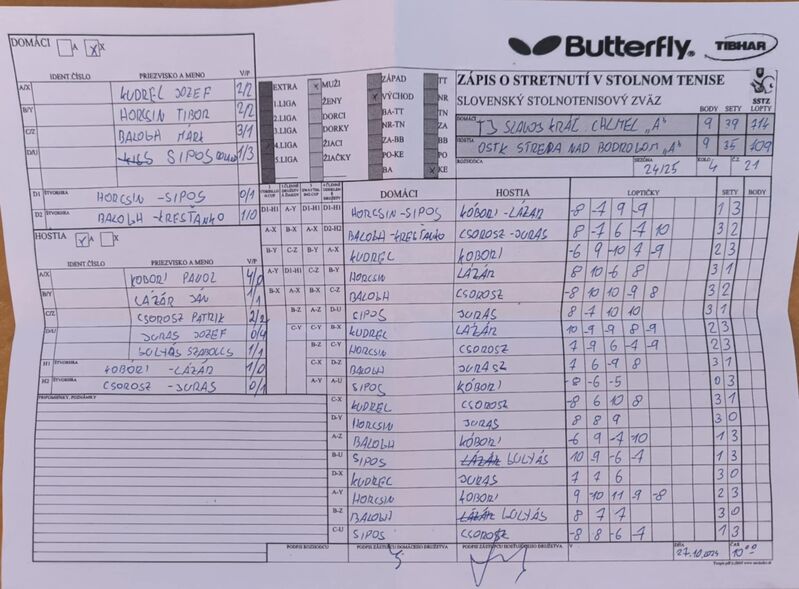 DOMÁCI A X
IDENT. ČÍSLO PRIEZVISKO A MENO V/P
A/X KUDREL JOZEF 2/2
B/Y HORCSIN TIBOR 2/2
C/Z BALOGH MARK 3/1
D/U SIPOS 1/3
D1 ŠTVORHRA HORCSIN - SIPOS 0/1
D2 ŠTVORHRA BALOGH - KREŠŤANKO 1/0
HOSTIA A X
IDENT. ČÍSLO PRIEZVISKO A MENO V/P
A/X KOBORI PAVOL 4/0
B/Y LÁZÁR JÁN 1/1
C/Z CSOROSZ PATRIK 2/2
D/U JURAS JOZEF 0/4
GULYÁS SZABOLCS 1/1
H1 ŠTVORHRA KOBORI - LÁZÁR 1/0
H2 ŠTVORHRA CSOROSZ - JURAS 0/1
PRIPOMIENKY, POZNÁMKY
EXTRA
1.LIGA
2.LIGA
3.LIGA
4.LIGA
5.LIGA
MUŽI
ŽENY
DORCI
DORKY
ŽIACI
ŽIAČKY
ZÁPAD TT
VÝCHOD NR
BA-TT TN
NR-TN ZA
ZA-BB BB
PO-KE PO
BA KE
Butterfly TIBHAR
ZÁPIS O STRETNUTÍ V STOLNOM TENISE
SLOVENSKÝ STOLNOTENISOVÝ ZVÄZ SSTZ
BODY SETY LOPTY
DOMÁCI TJ SLAVOJ KRÁĽ. CHLMEC "A" 9 39 714
HOSTIA OSTK STREDA NAD BODROGOM "A" 9 35 709
ROZHODCA SEZÓNA 24/25 KOLO 4 Č.Z. 21
DOMÁCI HOSTIA LOPTIČKY SETY BODY
D1-H1 A-Y D1-H1 D1-H1 HORCSIN - SIPOS KOBORI - LÁZÁR -8 -7 9 -9 1 3
A-X B-X A-X D2-H2 BALOGH - KREŠŤANKO CSOROSZ - JURAS 8 -7 6 -7 10 3 2
B-Y C-Z B-Y A-X KUDREL KOBORI -6 9 -10 7 -9 2 3
A-Y D1-H1 C-Z B-Y HORCSIN LÁZÁR 8 10 -6 8 3 1
B-X A-X B-X C-Z BALOGH CSOROSZ -8 10 10 -9 8 3 2
C-Y A-Z D-U SIPOS JURAS -8 7 10 10 3 1
B-Z C-Y B-X KUDREL LÁZÁR 10 -9 9 8 -9 2 3
B-Z C-Y HORCSIN CSOROSZ 7 -9 6 -7 -9 2 3
C-X D-Z BALOGH JURASZ 7 6 -9 8 3 1
A-Y A-U SIPOS KOBORI -8 -6 -5 0 3
C-X KUDREL CSOROSZ -8 6 10 8 3 1
D-Y HORCSIN JURAS 8 8 9 3 0
A-Z BALOGH KOBORI -6 9 -7 -10 1 3
B-U SIPOS LÁZÁR GULYÁS 10 -9 -6 -7 1 3
D-X KUDREL JURAS 7 7 6 3 0
A-Y HORCSIN KOBORI 9 -10 11 -9 -8 2 3
B-Z BALOGH LÁZÁR GULYÁS 8 7 7 3 0
C-U SIPOS CSOROSZ -8 8 -6 -7 1 3
PODPIS ROZHODCU PODPIS ZÁSTUPCU DOMÁCEHO DRUŽSTVA PODPIS ZÁSTUPCU HOSŤUJÚCEHO DRUŽSTVA V DŇA 27.10.2024 ČAS 10⁰⁰